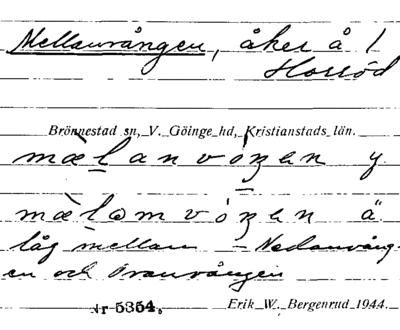 Mellanvången, åker å 1
Horröd
Brönnestad sn, V. Göinge hd, Kristianstads län.
mæ̀lanvóŋen y.
mæ̀lamvóŋen ä
låg mellan Nedanvång-
en och Ovanvången
Nr 5354. Erik W. Bergenrud 1944.